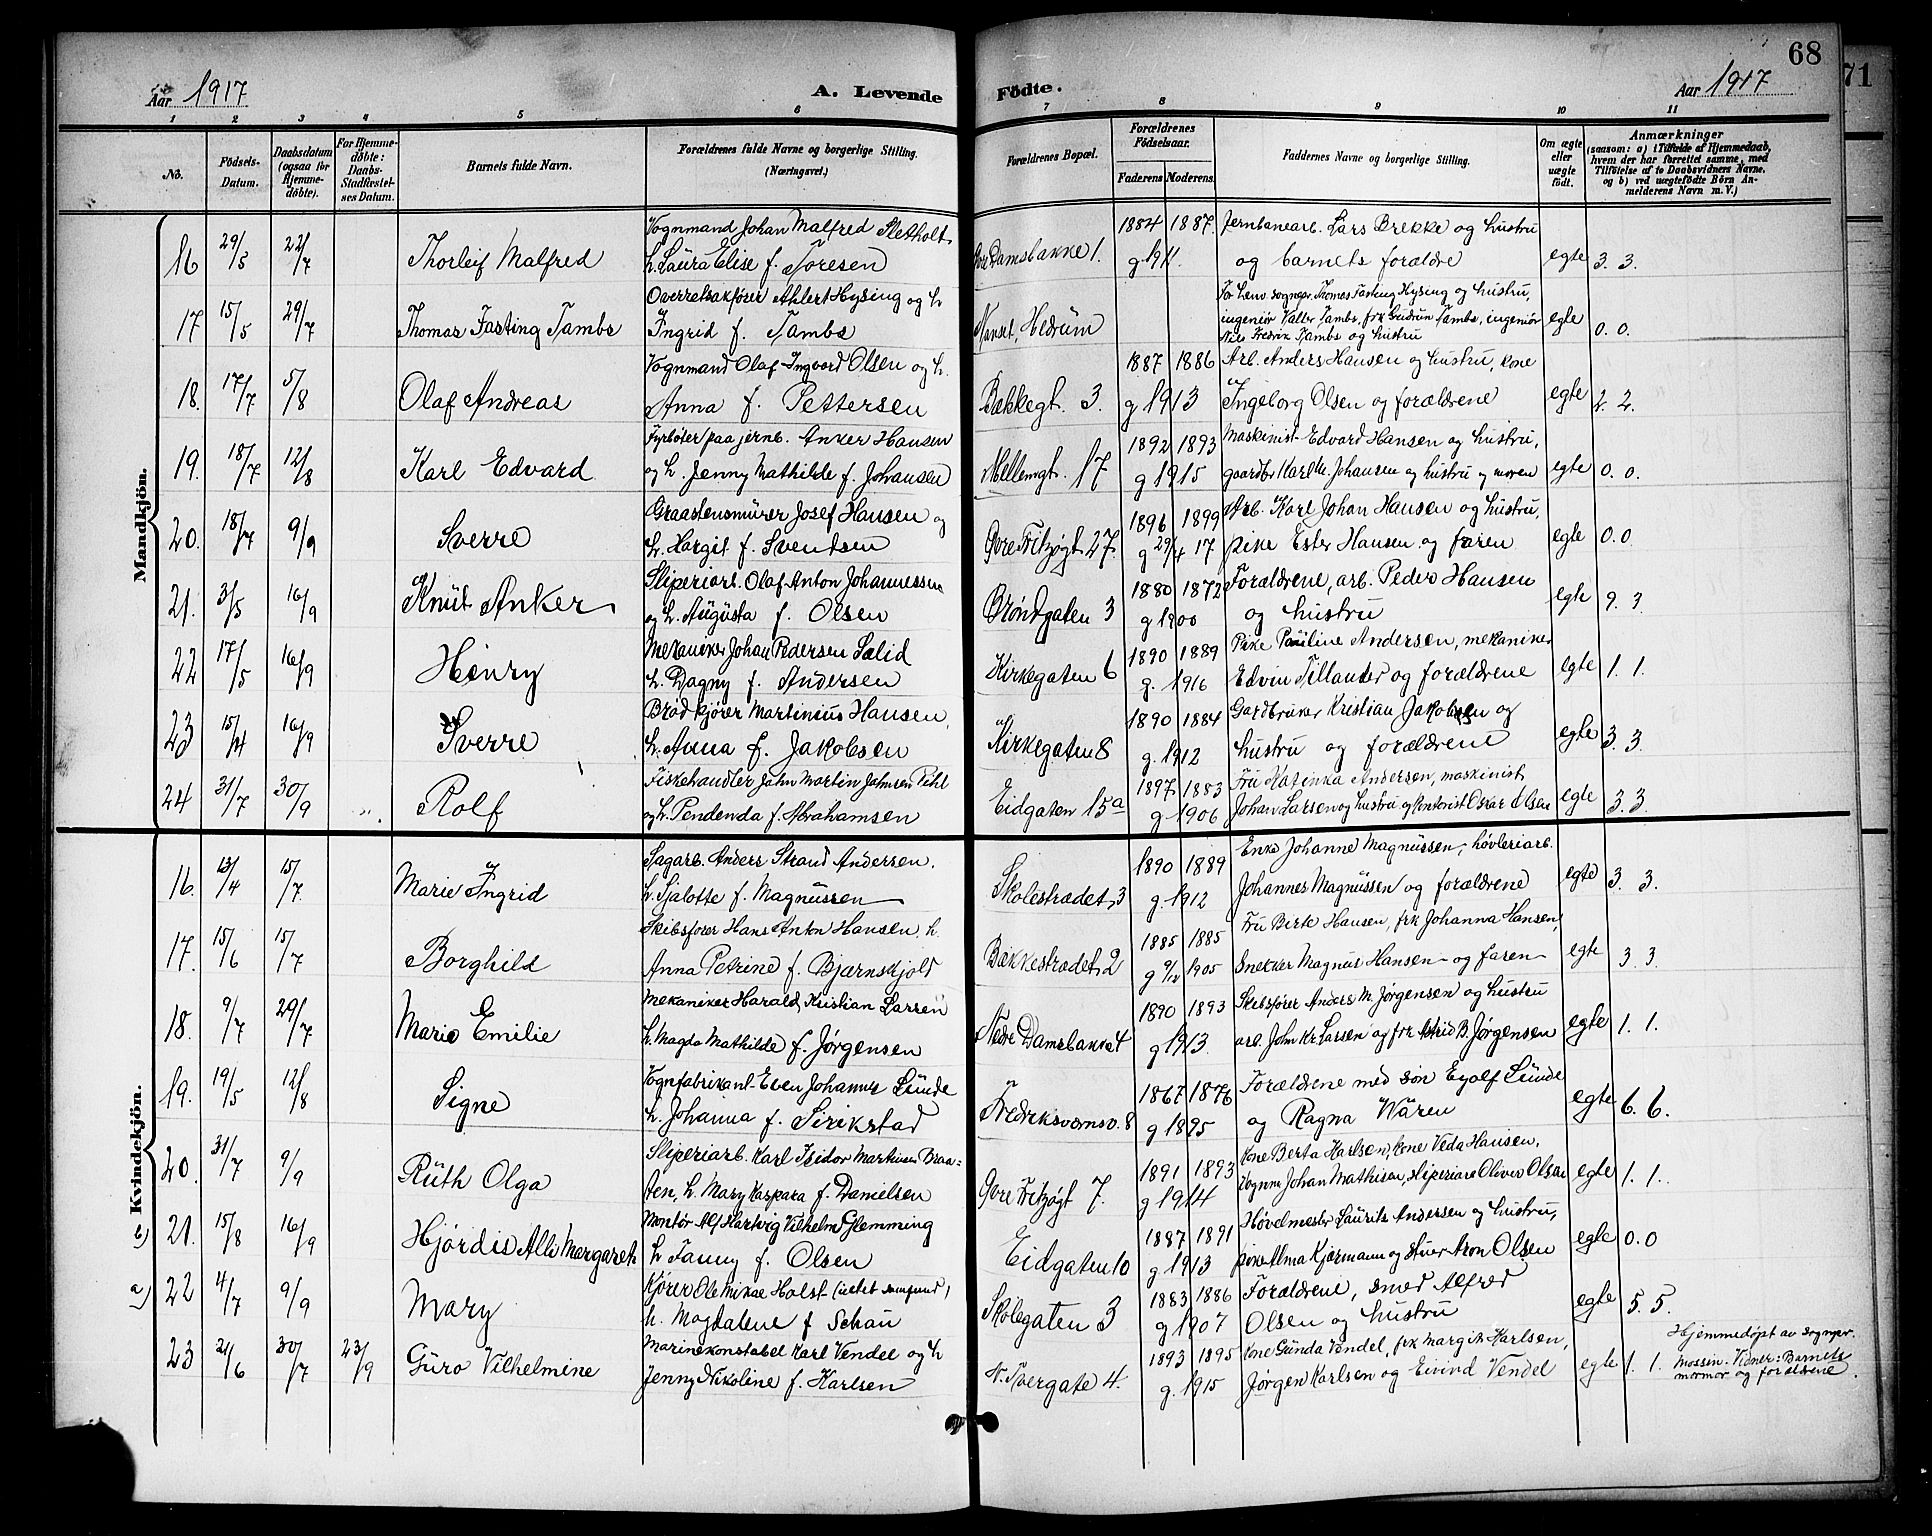 68
71
Aar 1917
A. Levende
Födte.
Aar 1917
1 2 3 4 5 6 7 8 9 10 11
No.
Födsels-Datum.
Daabsdatum (ogsaa for Hjemme-döbte).
For Hjemme-döbte: Daabs-Stadfæstel-ses Datum.
Barnets fulde Navn.
Forældrenes fulde Navne og borgerlige Stilling. (Næringsvei.)
Forældrenes Bopæl.
Forældrenes Födselsaar.
Faderens. Moderens.
Faddernes Navne og borgerlige Stilling.
Om ægte eller uægte födt.
Anmærkninger
(saasom: a) i Tilfælde af Hjemmedaab, hvem der har forrettet samme, med Tilföielse af to Daabsvidners Navne, og b) ved uægtefödte Börn An-melderens Navn m. V.)
Mandkjön.
16 29/5 22/7 Thorleif Malfred
Vognmand Johan Malfred Sletholt
h. Laura Elise f. Toresen
Øvre Damsbakke 1.
1884 1887
g 1911.
Jernbanearb. Lars Brekke og hustru
og barnets forældre
egte 3. 3.
17 15/5 29/7 Thomas Fasting Tambs
Overretsakfører Ahlert Hysing og h
Ingrid f. Tambs
Nanset, Hedrum
Thomas Fasting Hysing og hustru,
ingeniør Valter Tambs, frk Gudrun Tambs, ingeniør
Nils Fredrik Tambs og hustru
egte 0. 0.
18. 17/7 5/8 Olaf Andreas
Vognmand Olaf Ingvard Olsen og h.
Anna f. Pettersen
Bækkegt. 3.
1887 1886
g 1913
Arb. Anders Hansen og hustru, kone
Ingeborg Olsen og forældrene
egte 2. 2.
19. 18/7 12/8 Karl Edvard
Fyrbøter paa jernb. Anker Hansen
og h. Jenny Mathilde f. Johansen
Mellemgt. 17
1892 1893
g 1915
Maskinist Edvard Hansen og hustru,
gaardbr Karl M. Johansen og hustru og moren
egte 0. 0.
20. 18/7 9/9 Sverre
Graastensmurer Josef Hansen og
h. Hargit f. Svendsen
Øvre Fritzøgt 27.
1896 1899
g 29/4 17
Arb. Karl Johan Hansen og hustru,
pike Ester Hansen og faren
egte 0.0
21. 3/5 16/9 Knut Anker
Sliperiarb. Olaf Anton Johannessen
og h. Augusta f. Olsen
Brøndgaten 3
1880 1872
g 1900
Forældrene, arb. Peder Hansen
og hustru
egte 9. 3.
22 17/5 16/9 Henry
Mekaniker Johan Pedersen Salid
h. Dagny f. Andersen
Kirkegaten 6
1890 1889
g. 1916
Pike Pauline Andersen, mekaniker
Edvin Tillander og forældrene
egte 1. 1.
23 15/4 16/9 Sverre
Brødkjører Martinius Hansen,
h. Anna f. Jakobsen
Kirkegaten 8
1890 1884
g. 1912
Gardbruker Kristian Jakobsen og
hustru og forældrene
egte 3. 3.
24 31/7 30/9 Rolf
Fiskehandler John Martin Johnsen Pihl
og h. Pendenda f. Abrahamsen
Eidgaten 15a
1897 1883
g. 1906
Fru Katinka Andersen, maskinist
Johan Larsen og hustru og kontorist Oskar Olsen
egte 3. 3.
b) Kvindekjön.
a)
16. 13/4 15/7 Marie Ingrid
Sagarb. Anders Strand Andersen.
h. Sjalotte f. Magnussen
Skolestrædet 3
1890 1889
g. 1912
Enke Johanne Magnussen, høvleriarb.
Johannes Magnussen og forældrene
egte 3. 3.
17. 15/6 15/7 Borghild
Skibsfører Hans Anton Hansen. h.
Anna Petrine f. Bjørnskjold
Bakkestrædet 2
1885 1885
g 9/12 1905
Fru Birte Hansen, frk Johanna Hansen,
Snekker Magnus Hansen og faren
egte 3. 3.
18. 9/7 29/7 Marie Emilie
Mekaniker Harald Kristian Larsen
h. Magda Mathilde f. Jørgensen
Nedre Damsbakke 4
1890 1893
g 1913.
Skibsfører Anders M. Jørgensen og hustru
arb. John Kr. Larsen og frk Astrid B. Jørgensen
egte 1. 1.
19. 19/5 12/8 Signe
Vognfabrikant Even Johannes Lunde
h. Johanna f. Sirikstad
Fredriksværnsv. 8
1867 1876
g 1895
Forældrene med søn Eyolf Lunde
og Ragna Wåren
egte 6. 6.
20. 31/7 9/9 Ruth Olga
Sliperiarb. Karl Isidor Martinsen Braa=
ten, h. Mary Kaspara f. Danielsen
Øvre Fritzøgt 7.
1891 1893
g 1914
Kone Berta Karlsen, kone Veda Hansen,
Vognm Johan Mathisen, sliperiarb Oliver Olsen
egte 1. 1.
21. 15/8 16/9 Hjørdis Alli Margareth
Montør Alf Hartvig Vilhelm Glemming
h. Fanny f. Olsen
Eidgaten 10
1887 1891
g 1913
Høvelmester Laurits Andersen og hustru,
pike Alma Kjærmann og Aron Olsen
egte 0.0
22 4/7 9/9 Mary
Kjører Ole Mikae Holst (utet samfund),
h. Magdalene f Schau
Skolegaten 3
1883 1886
g 1907
Forældrene, smed Alfred
Olsen og hustru
egte 5. 5.
23 21/6 30/7 23/9 Guro Vilhelmine
Marinekonstabel Karl Vendel og h
Jenny Nikoline f. Karlsen
N. Tvergate 4.
1893 1895
g. 1915
Kone Gunda Vendel, frk Margit Karlsen,
Jørgen Karlsen og Eivind Vendel
egte 1. 1.
Hjemmedøpt av sognepr.
Mossin. Vidner: Barnets
mormor og forældrene.